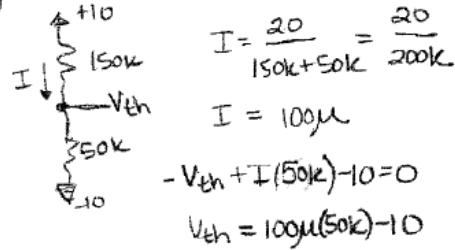 +10
I
150k
Vth
50k
-10
I = 20 / (150k+50k) = 20 / 200k
I = 100μ
-Vth + I(50k) - 10 = 0
Vth = 100μ(50k) - 10